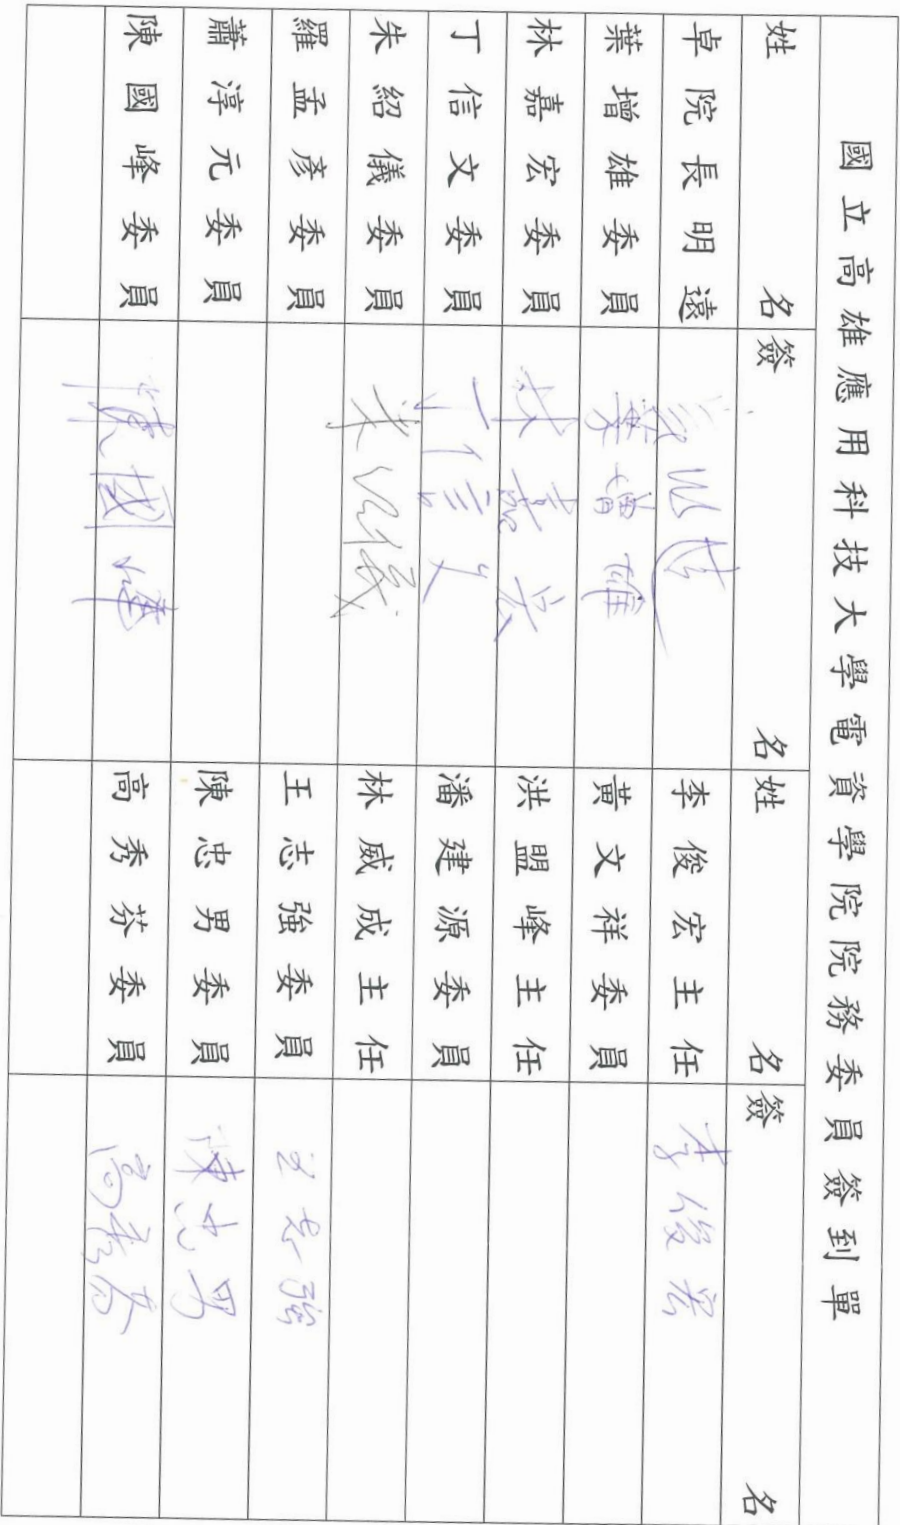 國立高雄應用科技大學電資學院院務委員簽到單
姓名 簽名 姓名 簽名
卓院長明遠 李俊宏主任 李俊宏
葉增雄委員 葉增雄 黃文祥委員
林嘉宏委員 林嘉宏 洪盟峰主任
丁信文委員 丁信文 潘建源委員
朱紹儀委員 朱紹儀 林威成主任
羅孟彥委員 王志強委員 王志強
蕭淳元委員 陳忠男委員 陳忠男
陳國峰委員 陳國峰 高秀芬委員 高秀芬